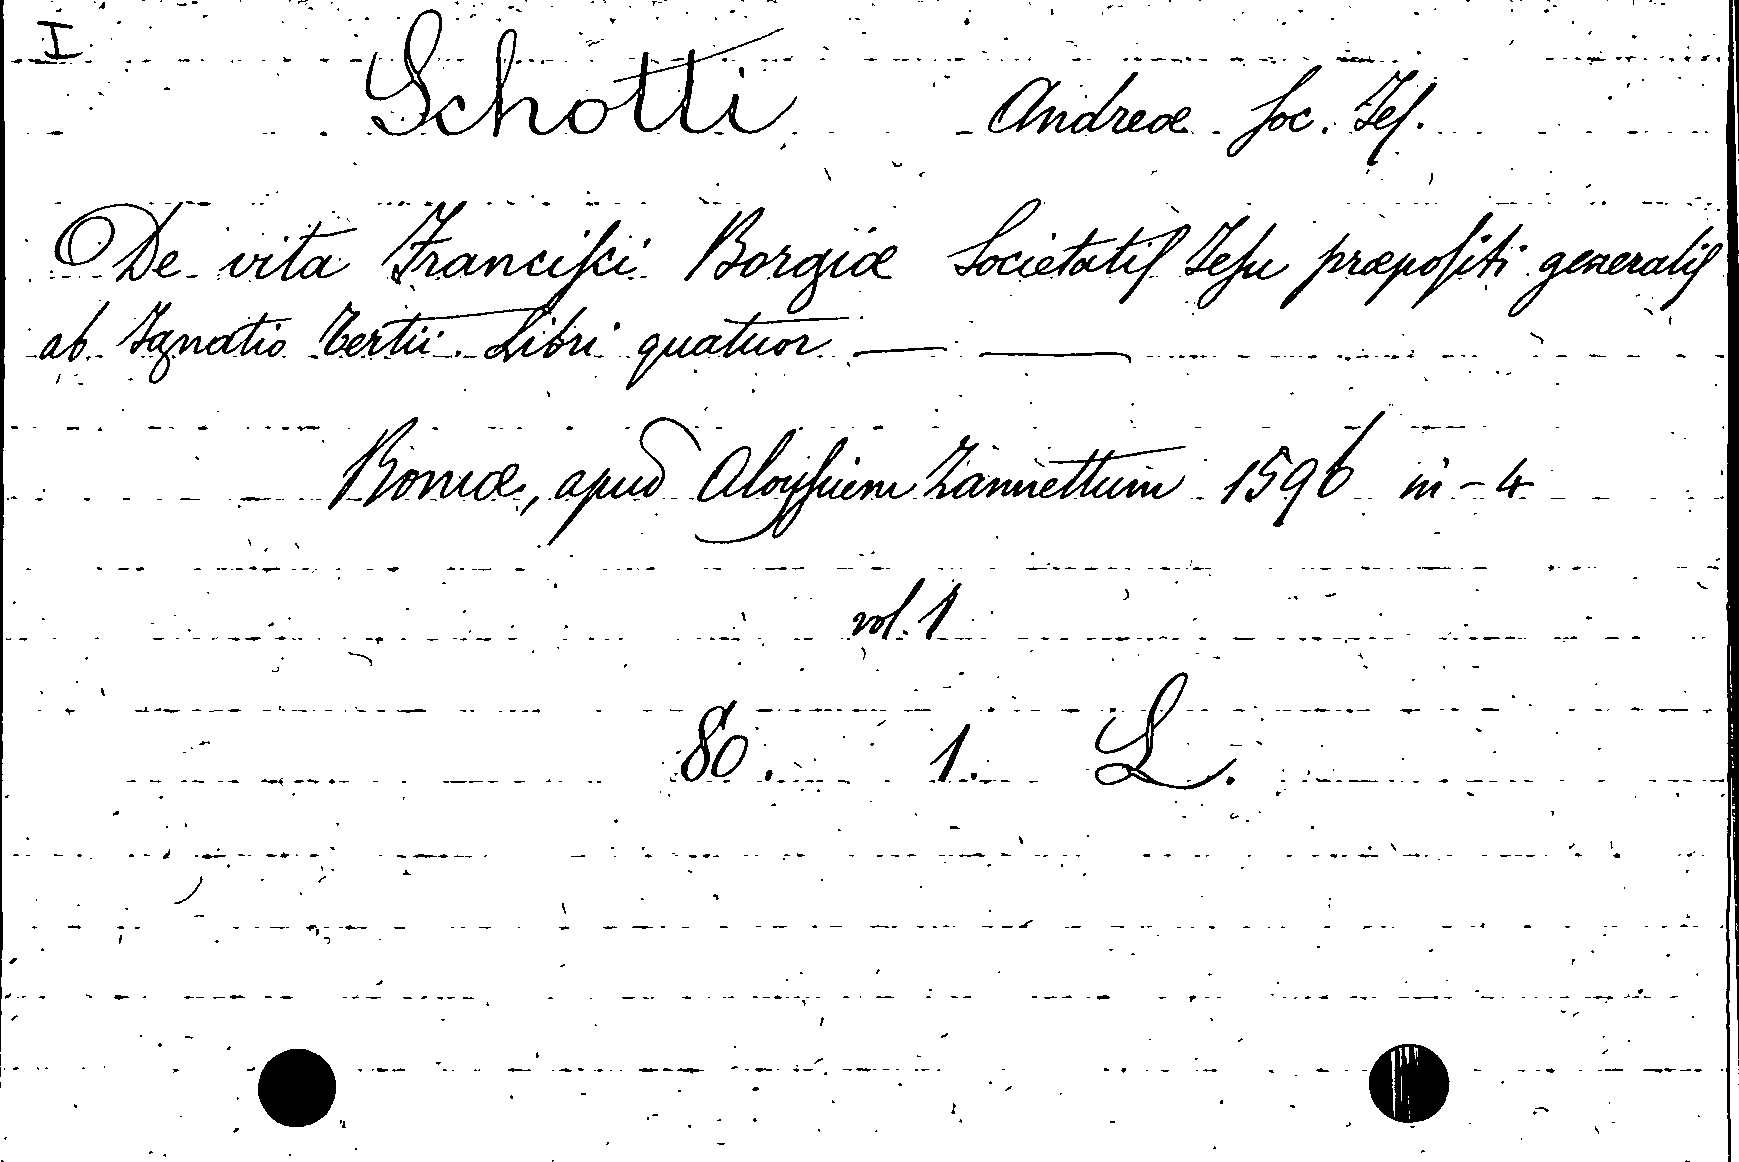 I
Schotti Andreæ Soc. Jes.
De vita Francisci Borgiæ Societatis Jesu præpositi generalis
ab Ignatio tertii. Libri quatuor — —
Romæ, apud Aloysium Zannettum 1596 in-4
vol. 1
80. 1. L.